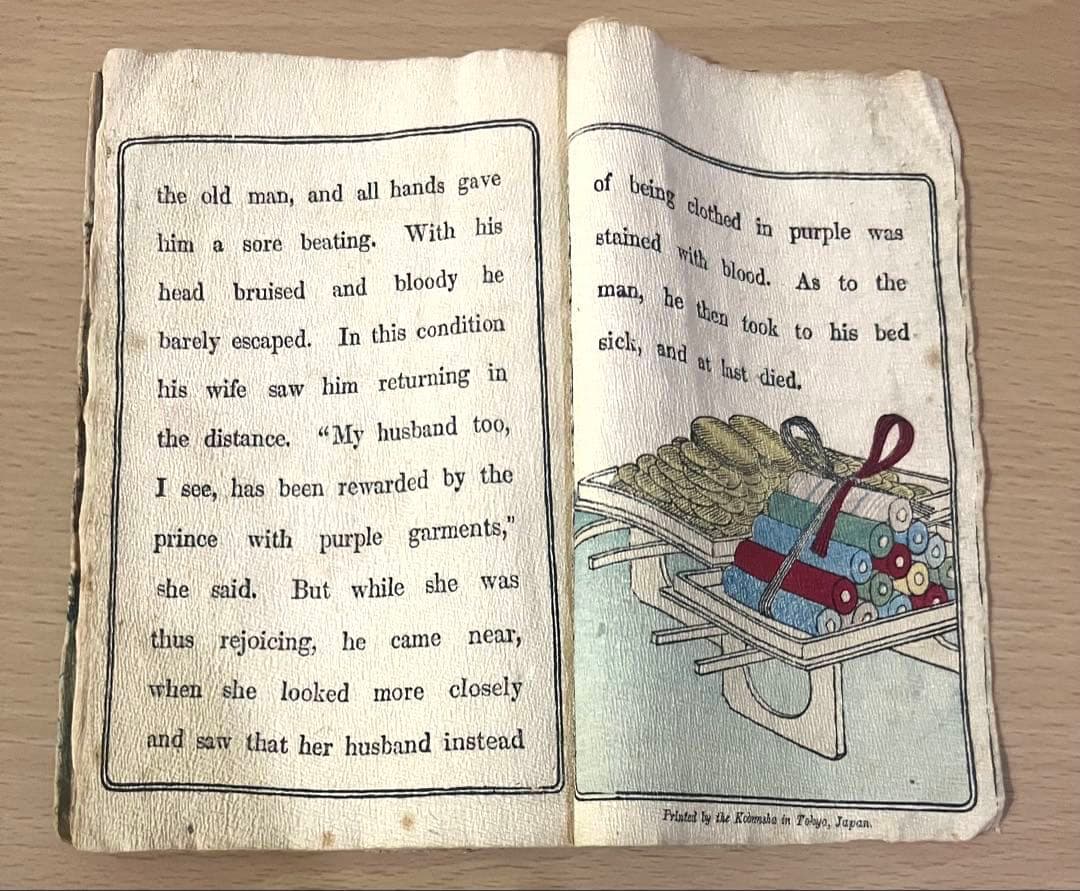 the old man, and all hands gave
him a sore beating. With his
head bruised and bloody he
barely escaped. In this condition
his wife saw him returning in
the distance. “My husband too,
I see, has been rewarded by the
prince with purple garments,”
she said. But while she was
thus rejoicing, he came near,
when she looked more closely
and saw that her husband instead
of being clothed in purple was
stained with blood. As to the
man, he then took to his bed
sick, and at last died.
Printed by the Kobunsha in Tokyo, Japan.